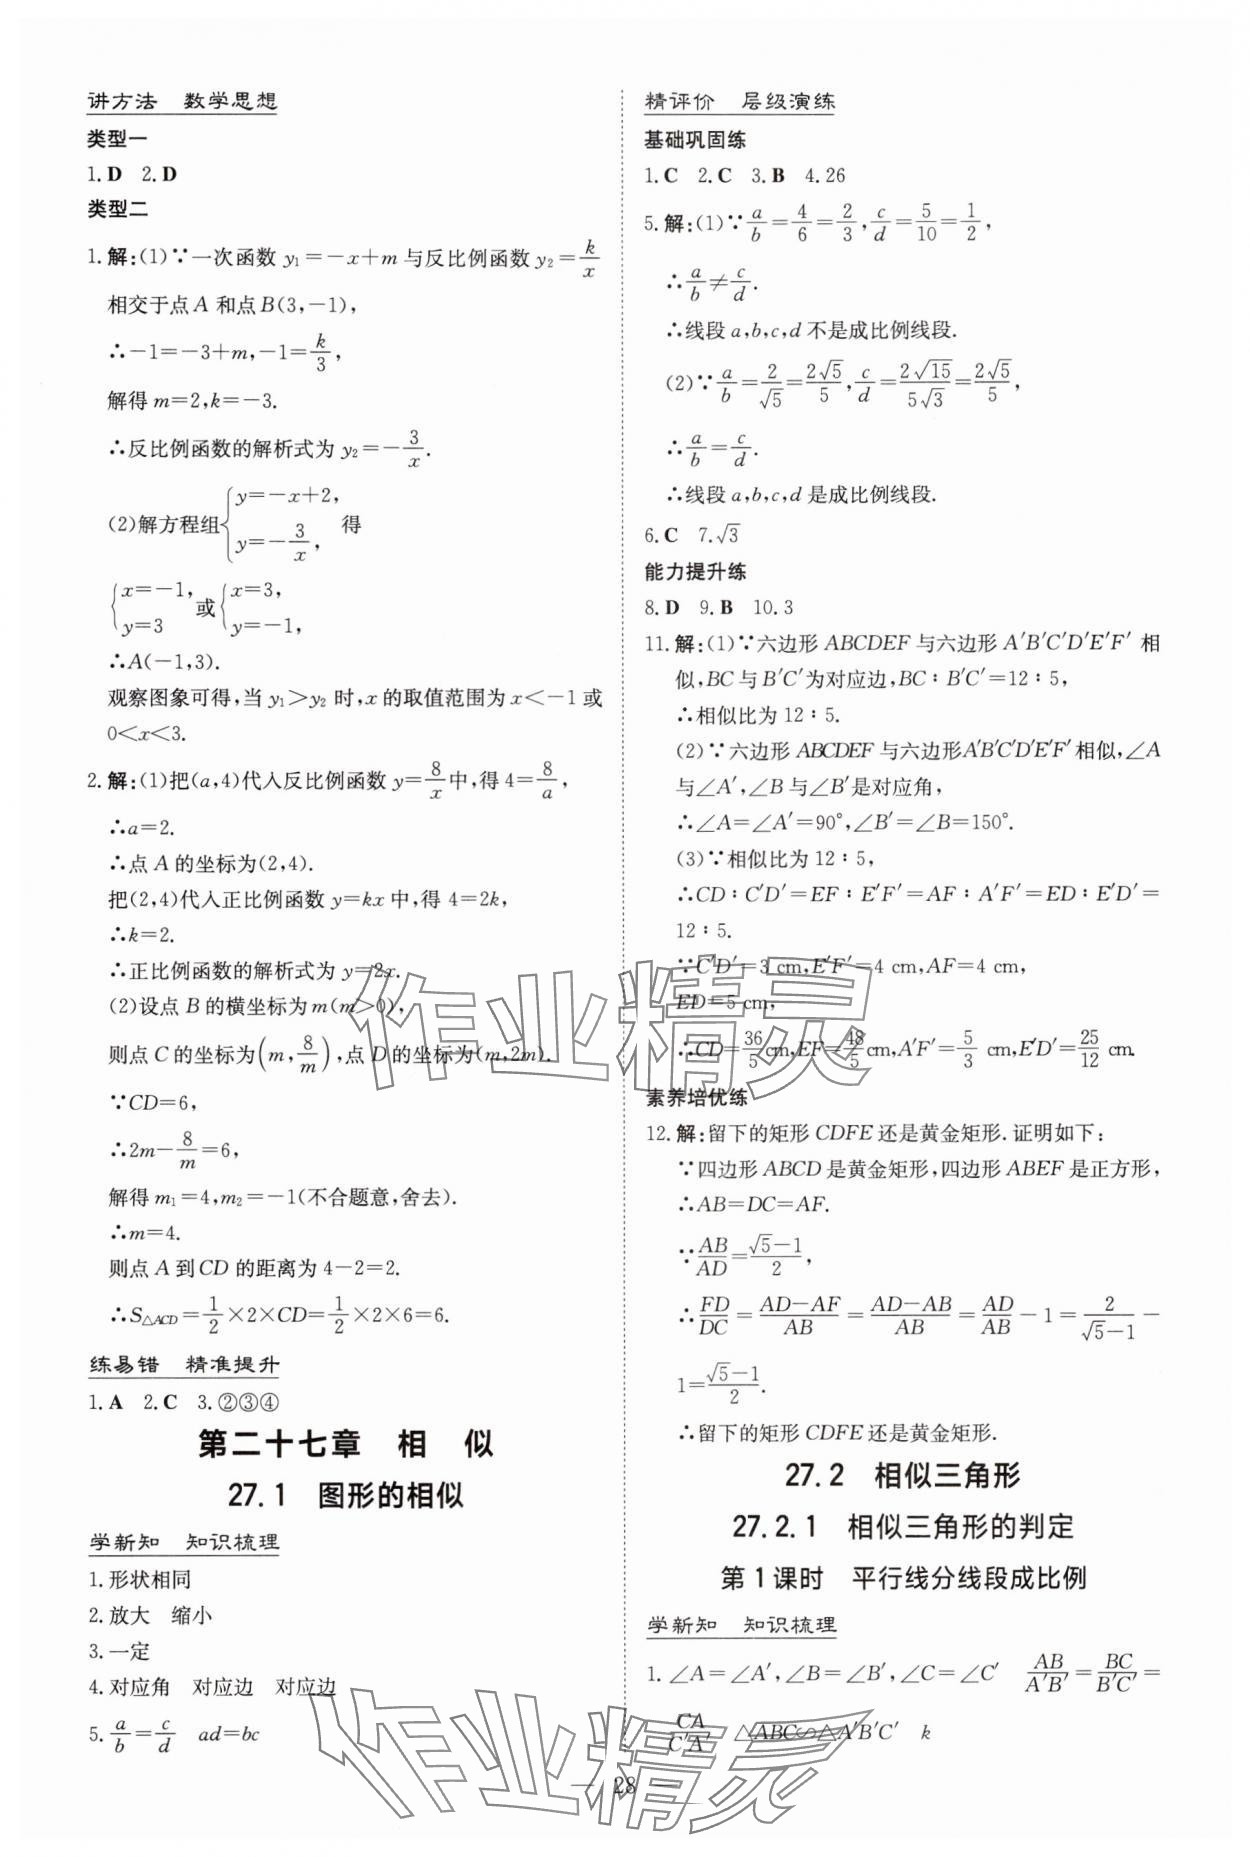 讲方法 数学思想
类型一
1. D 2. D
类型二
1. 解:(1)∵一次函数 y₁=-x+m 与反比例函数 y₂=k/x
相交于点 A 和点 B(3,-1),
∴-1=-3+m,-1=k/3,
解得 m=2,k=-3.
∴反比例函数的解析式为 y₂=-3/x.
(2)解方程组{y=-x+2, y=-3/x, 得
{x=-1, y=3 或{x=3, y=-1,
∴A(-1,3).
观察图象可得,当 y₁>y₂ 时,x 的取值范围为 x<-1 或
0<x<3.
2. 解:(1)把(a,4)代入反比例函数 y=8/x中,得 4=8/a,
∴a=2.
∴点 A 的坐标为(2,4).
把(2,4)代入正比例函数 y=kx 中,得 4=2k,
∴k=2.
∴正比例函数的解析式为 y=2x.
(2)设点 B 的横坐标为 m(m>0),
则点 C 的坐标为(m,8/m),点 D 的坐标为(m,2m).
∵CD=6,
∴2m-8/m=6,
解得 m₁=4,m₂=-1(不合题意,舍去).
∴m=4.
则点 A 到 CD 的距离为 4-2=2.
∴S△ACD=1/2×2×CD=1/2×2×6=6.
练易错 精准提升
1. A 2. C 3. ②③④
第二十七章 相 似
27.1 图形的相似
学新知 知识梳理
1. 形状相同
2. 放大 缩小
3. 一定
4. 对应角 对应边 对应边
5. a/b=c/d ad=bc
精评价 层级演练
基础巩固练
1. C 2. C 3. B 4. 26
5. 解:(1)∵a/b=4/6=2/3,c/d=5/10=1/2,
∴a/b≠c/d.
∴线段 a,b,c,d 不是成比例线段.
(2)∵a/b=2/√5=2√5/5,c/d=2√15/5√3=2√5/5,
∴a/b=c/d.
∴线段 a,b,c,d 是成比例线段.
6. C 7. √3
能力提升练
8. D 9. B 10. 3
11. 解:(1)∵六边形 ABCDEF 与六边形 A′B′C′D′E′F′ 相
似,BC 与 B′C′为对应边,BC∶B′C′=12∶5,
∴相似比为 12∶5.
(2)∵六边形 ABCDEF 与六边形A′B′C′D′E′F′相似,∠A
与∠A′,∠B 与∠B′是对应角,
∴∠A=∠A′=90°,∠B′=∠B=150°.
(3)∵相似比为 12∶5,
∴CD∶C′D′=EF∶E′F′=AF∶A′F′=ED∶E′D′=
12∶5.
∵C′D′=3 cm,E′F′=4 cm,AF=4 cm,
ED=5 cm,
∴CD=36/5cm,EF=48/5cm,A′F′=5/3 cm,E′D′=25/12 cm.
素养培优练
12. 解:留下的矩形 CDFE 还是黄金矩形.证明如下:
∵四边形 ABCD 是黄金矩形,四边形 ABEF 是正方形,
∴AB=DC=AF.
∵AB/AD=(√5-1)/2,
∴FD/DC=(AD-AF)/AB=(AD-AB)/AB=AD/AB-1=2/(√5-1)-
1=(√5-1)/2.
∴留下的矩形 CDFE 还是黄金矩形.
27.2 相似三角形
27.2.1 相似三角形的判定
第 1 课时 平行线分线段成比例
学新知 知识梳理
1. ∠A=∠A′,∠B=∠B′,∠C=∠C′ AB/A′B′=BC/B′C′=
CA/C′A′ △ABC∽△A′B′C′ k
— 28 —
作业精灵
作业精灵